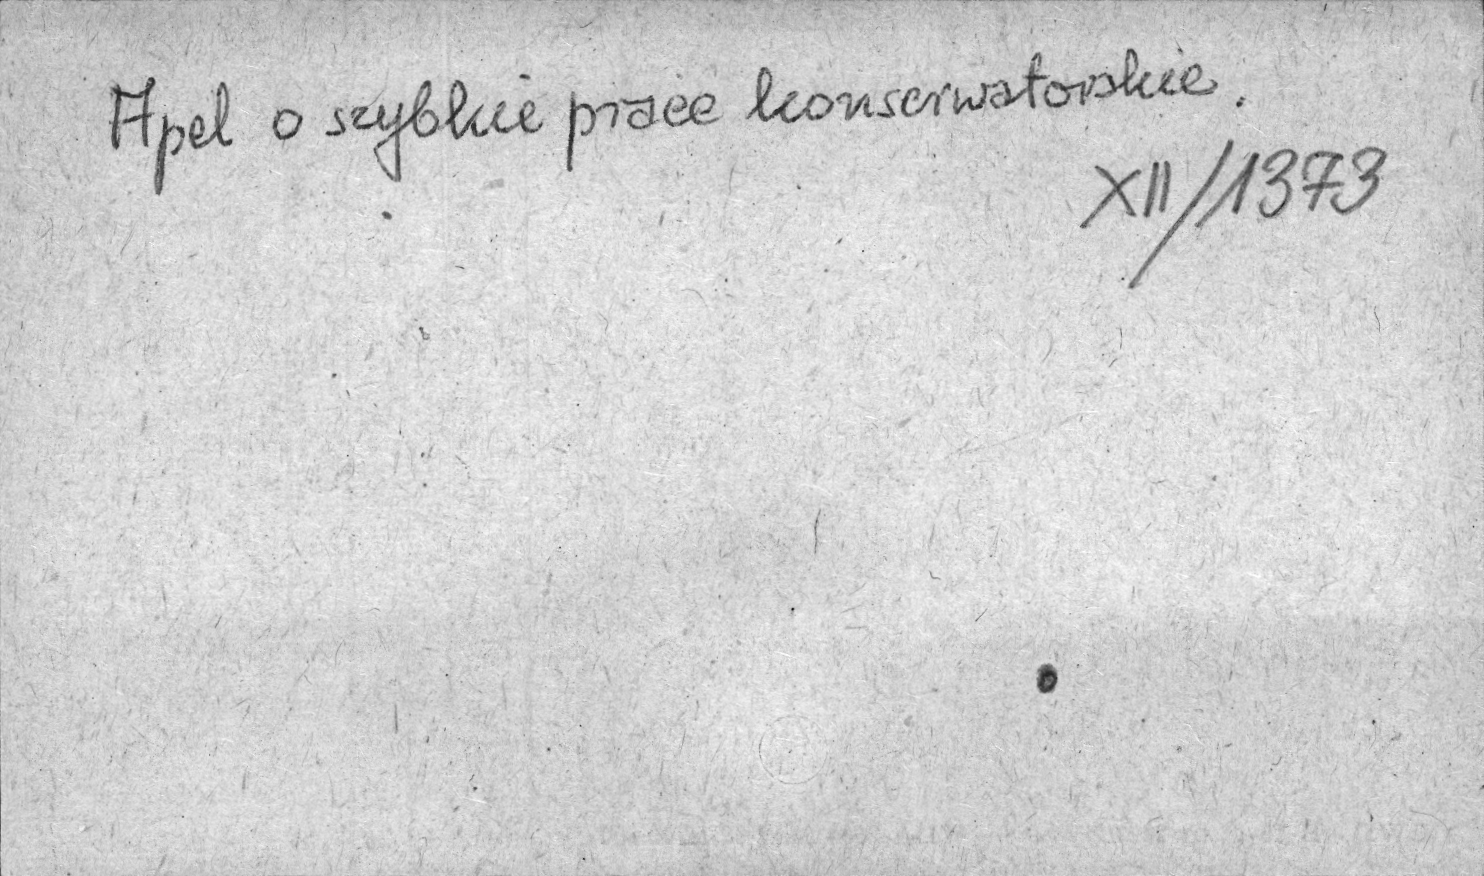 Apel o szybkie prace konserwatorskie.
XII/1373